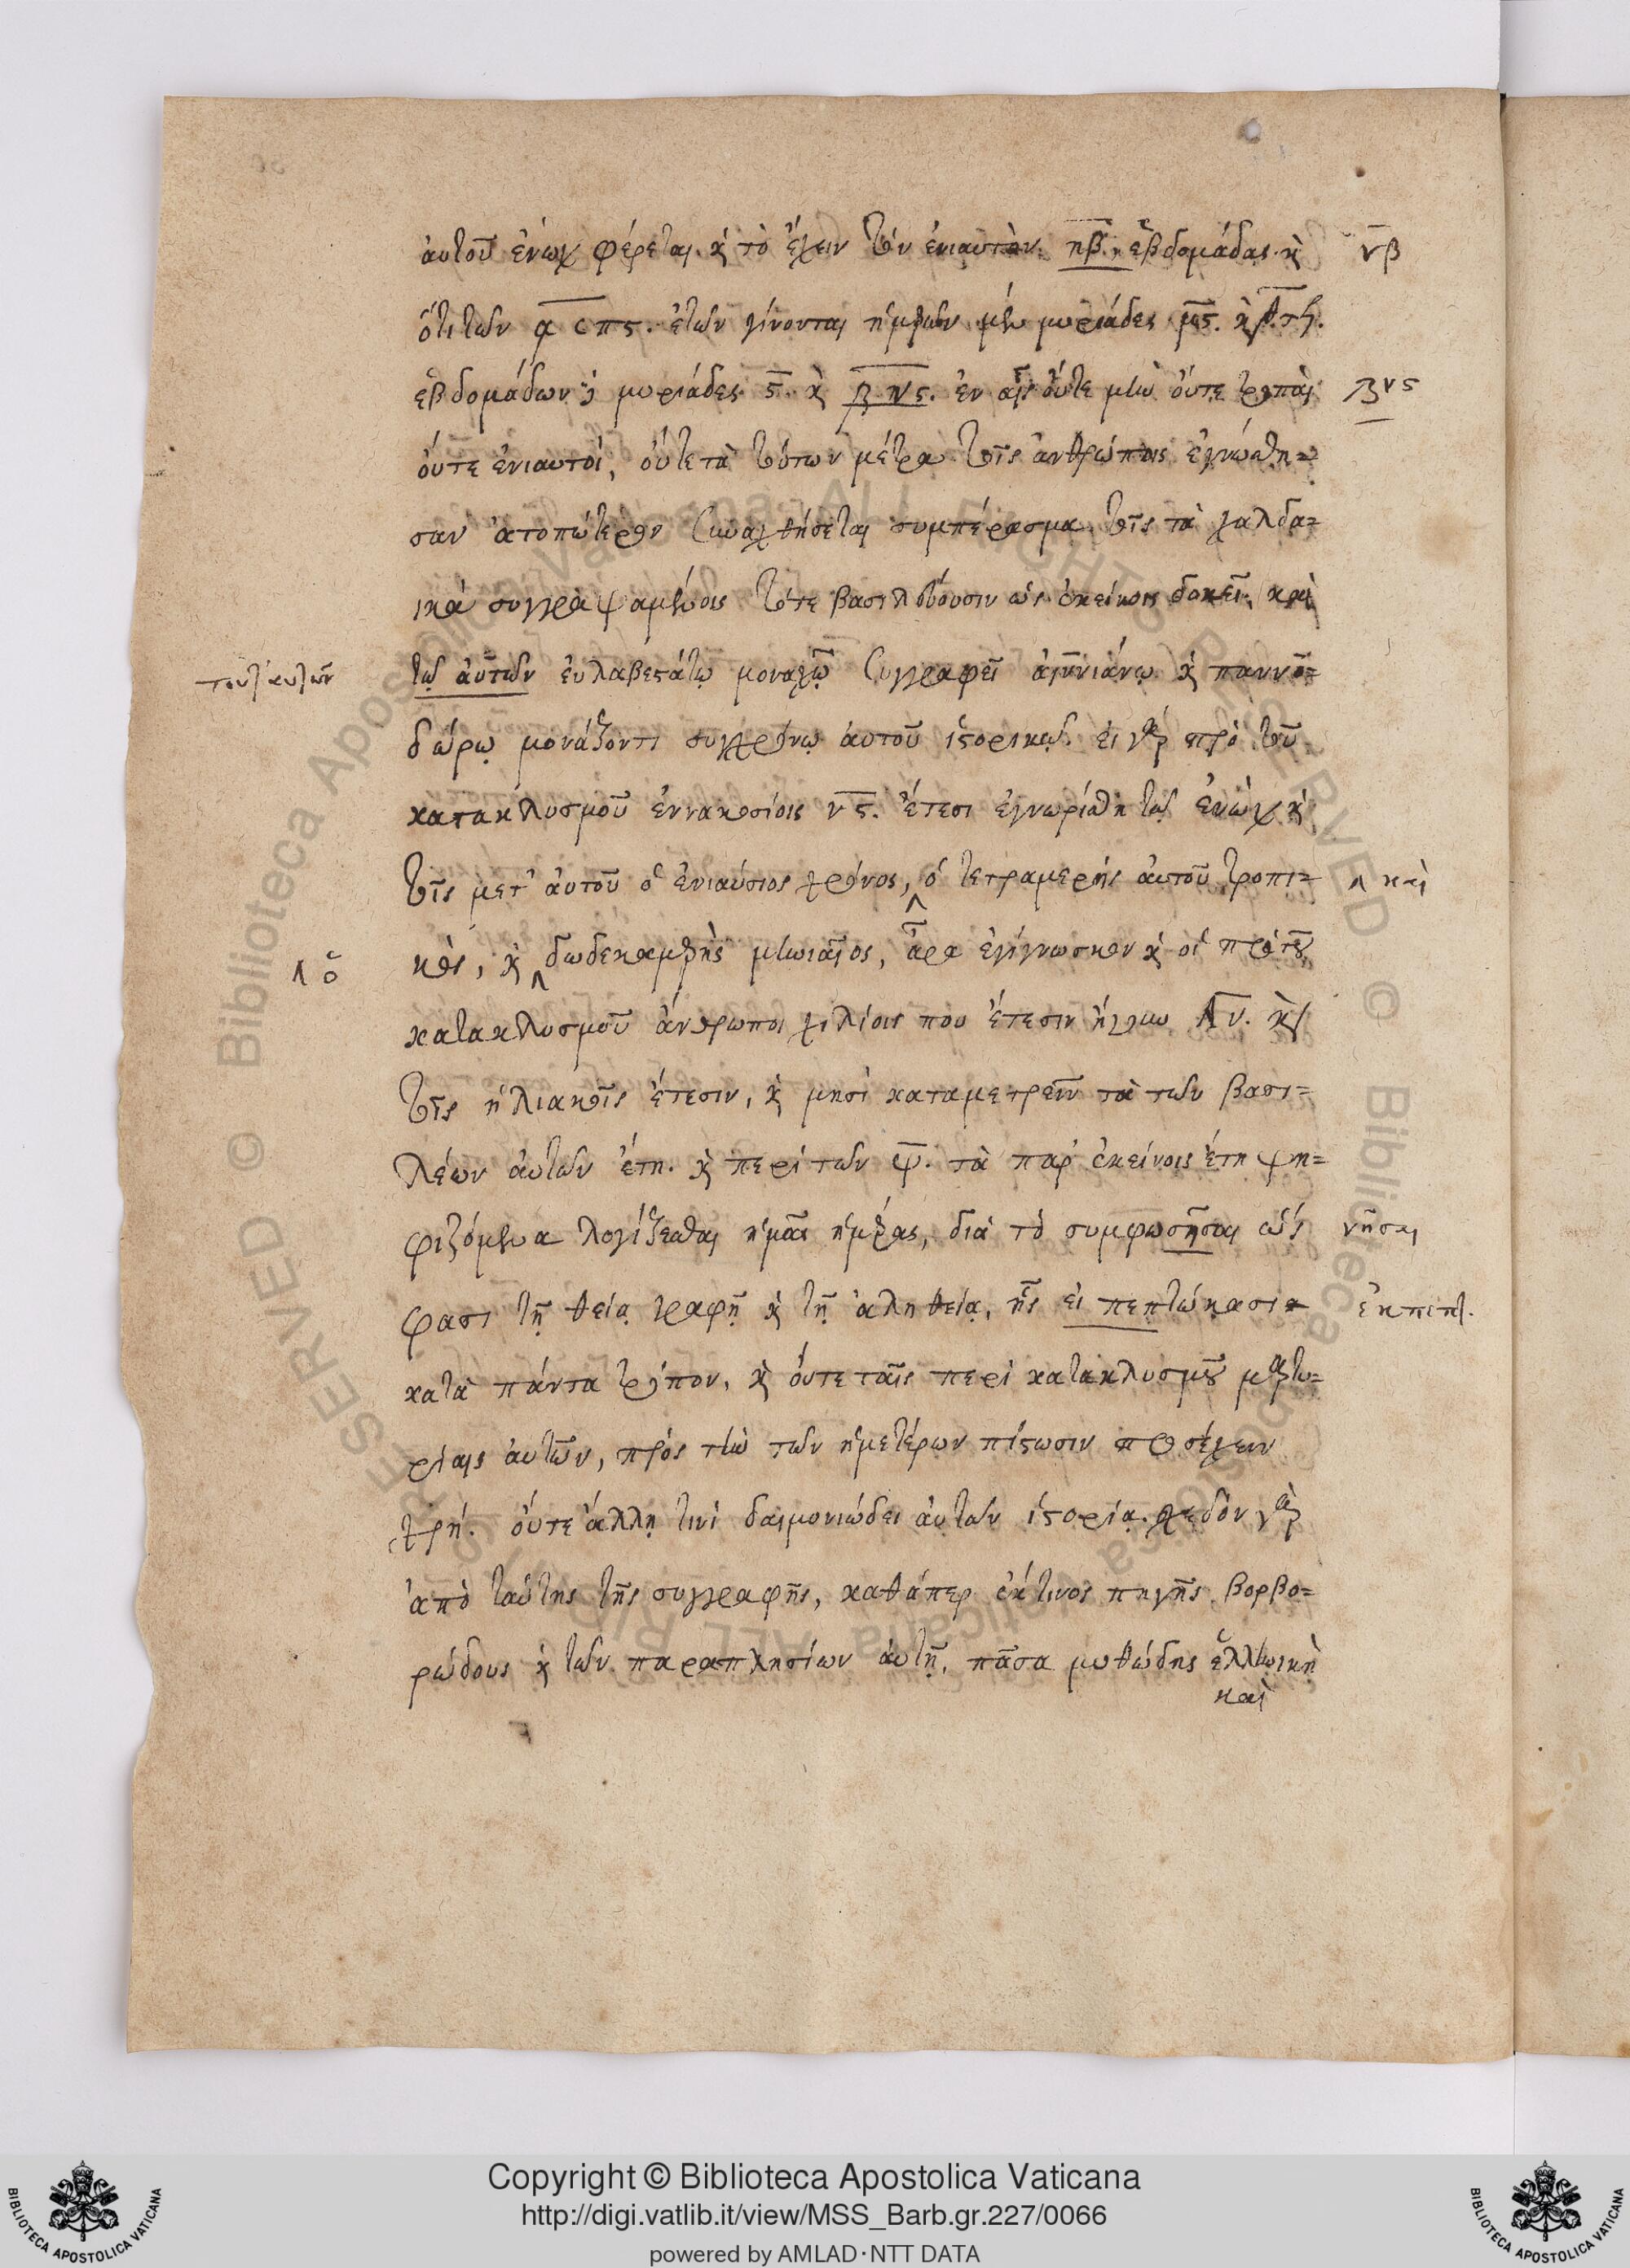 αὐτοῦ ἐνὼχ φέρεται. καὶ τὸ ἔχειν τὸν ἐνιαυτὸν. ηβ. ἑβδομάδας. καὶ νβ
ὅτι τῶν ασπς. ἐτῶν γίνονται ἡμερῶν μὲν μυριάδες μς. καὶ
ἑβδομάδων δὲ μυριάδες ς. καὶ βνς. ἐν αἷς οὔτε μὴν οὔτε τροπαὶ βνς
οὔτε ἐνιαυτοὶ, οὔτε τὰ τούτων μέτρα τοῖς ἀνθρώποις ἐγνώσθη=
σαν ἀτοπώτερον συναχθήσεται συμπέρασμα. τοῖς τὰ χαλδα=
ικὰ συγγραψαμένοις τότε βασιλεύουσιν ὡς ἐκείνοις δοκεῖ, καὶ
τουλαυτῶν τῷ αὐτῶν εὐλαβεστάτῳ μοναχῷ συγγραφεῖ ἀννιάνῳ καὶ παννο=
δώρῳ μονάζοντι συγχρόνῳ αὐτοῦ ἱστορικῷ. εἰ γὰρ πρὸ τοῦ
κατακλυσμοῦ ἐννακοσίοις νς. ἔτεσι ἐγνωρίσθη τῷ ἐνὼχ καὶ
τοῖς μετ' αὐτοῦ ὁ ἐνιαύσιος χρόνος, ὁ τετραμερὴς αὐτοῦ τροπι= ʌ καὶ
ʌ ὁ κὸς, καὶ δωδεκαμερὴς μηνιαῖος, ἆρα ἐγίγνωσκον καὶ οἱ πρὸ τοῦ
κατακλυσμοῦ ἄνθρωποι χιλίοις που ἔτεσιν ἤγουν αν. καὶ
τοῖς ἡλιακοῖς ἔτεσιν, καὶ μησὶ καταμετρεῖν τὰ τῶν βασι=
λέων αὐτῶν ἔτη. καὶ περὶ τῶν ψ. τὰ παρ' ἐκείνοις ἔτη ψη=
φιζόμενα λογίζεσθαι ἡμᾶς ἡμέρας, διὰ τὸ συμφωσῆσαι ὡς νῆσαι
φασι τῇ θείᾳ γραφῇ καὶ τῇ ἀληθείᾳ, ἧς εἰ πεπτώκασι ἐκπεπτ.
κατὰ πάντα τρόπον, καὶ οὔτε ταῖς περὶ κατακλυσμοῦ μαρτυ=
ρίαις αὐτῶν, πρὸς τὴν τῶν ἡμετέρων πίστωσιν προσέχειν
χρή. οὔτε ἄλλῃ τινὶ δαιμονιώδει αὐτῶν ἱστορίᾳ. σχεδὸν γὰρ
ἀπὸ ταύτης τῆς συγγραφῆς, καθάπερ ἐκ τινος πηγῆς βορβο=
ρώδους καὶ τῶν παραπλησίων αὐτῇ, πᾶσα μυθώδης ἑλληνικὴ
καὶ
Copyright © Biblioteca Apostolica Vaticana
http://digi.vatlib.it/view/MSS_Barb.gr.227/0066
powered by AMLAD·NTT DATA